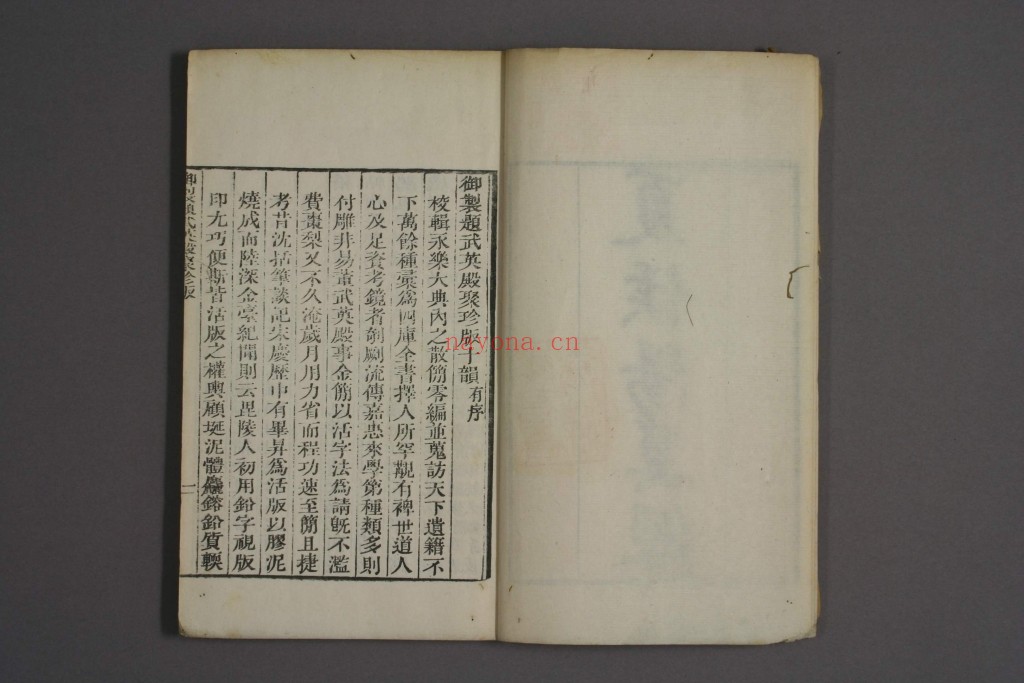 御製題武英殿聚珍版十韻有序
校輯永樂大典內之散簡零編並蒐訪天下遺籍不
下萬餘種彙為四庫全書擇人所罕覯有裨世道人
心及足資考鏡者剞劂流傳嘉惠來學第種類多則
付雕非易董武英殿事金簡以活字法為請既不濫
費棗梨又不久淹歲月用力省而程功速至簡且捷
考昔沈括筆談記宋慶歷中有畢昇為活版以膠泥
燒成而陸深金臺紀聞則云毘陵人初用鉛字視版
印尤巧便斯皆活版之權輿顧埏泥體麤鎔鉛質輭
御製題武英殿聚珍版
一
nayona.cn